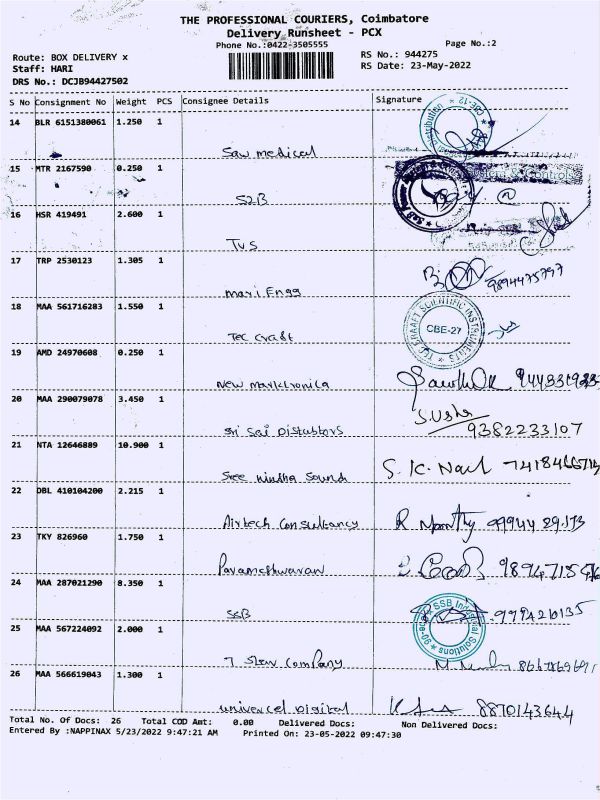 THE PROFESSIONAL COURIERS, Coimbatore
Delivery Runsheet - PCX
Phone No.:0422-3505555 Page No.:2
Route: BOX DELIVERY x RS No.: 944275
Staff: HARI RS Date: 23-May-2022
DRS No.: DCJB94427502
S No Consignment No Weight PCS Consignee Details Signature
14 BLR 6151380061 1.250 1
Saw medical
15 MTR 2167590 0.250 1
S2B
16 HSR 419491 2.600 1
TVS
17 TRP 2530123 1.305 1
mari Engg 9894475797
18 MAA 561716283 1.550 1
Tec craft
TEC KRAAFT SCIENTIFIC INSTRUMENTS
CBE-27
19 AMD 24970608 0.250 1
New marktronica
20 MAA 290079078 3.450 1
S.Usha
Sri Sai Distubtors 9382233107
21 NTA 12646889 10.900 1
Sree Sound S.K.
22 DBL 410104200 2.215 1
Airtech Consultancy R 99944 89173
23 TKY 826960 1.750 1
Parameshwaran
24 MAA 287021290 8.350 1
SSB 9994210135
SSB Industrial Solutions
25 MAA 567224092 2.000 1
T Stan Company
26 MAA 566619043 1.300 1
univercel Digital 8870143644
Total No. Of Docs: 26 Total COD Amt: 0.00 Delivered Docs: Non Delivered Docs:
Entered By :NAPPINAX 5/23/2022 9:47:21 AM Printed On: 23-05-2022 09:47:30